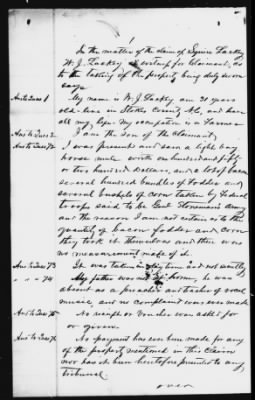 In the matter of the claim of Squire Lackey
W. J. Lackey a witness for Claimant, as
to the taking of the property being duly sworn
says
Ans to Ques 1 My name is W. J. Lackey am 21 years
old. live in Stokes County N.C. and have
all my life. My occupation is a Farmer
Ans to Ques 2 I am the Son of the Claimant.
Ans to Ques 72 I was present and saw a light bay
horse mule worth one hundred and fifty
or two hundred dollars, and a lot of bacon
several hundred bundles of fodder and
several bushels of corn taken by Federal
troops said to be Genl Stoneman's Army
and the reason I am not certain as to the
quantity of bacon fodder and corn
they took it themselves and there was
no measurement made of it.
Ans to Ques 73 It was taken in day time and not secretly
" " " 74 My father was not at home, he was
absent as a preacher and teacher of vocal
music, and no complaint was ever made
Ans to Ques 75 No receipt or voucher was asked for
or given.
Ans to Ques 76 No payment has ever been made for any
of the property mentioned in this Claim
nor has it been heretofore presented to any
tribunal.
over